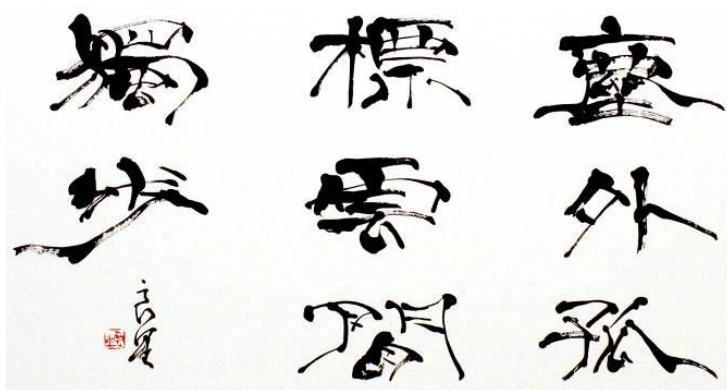 塵外孤
標雲間
獨步